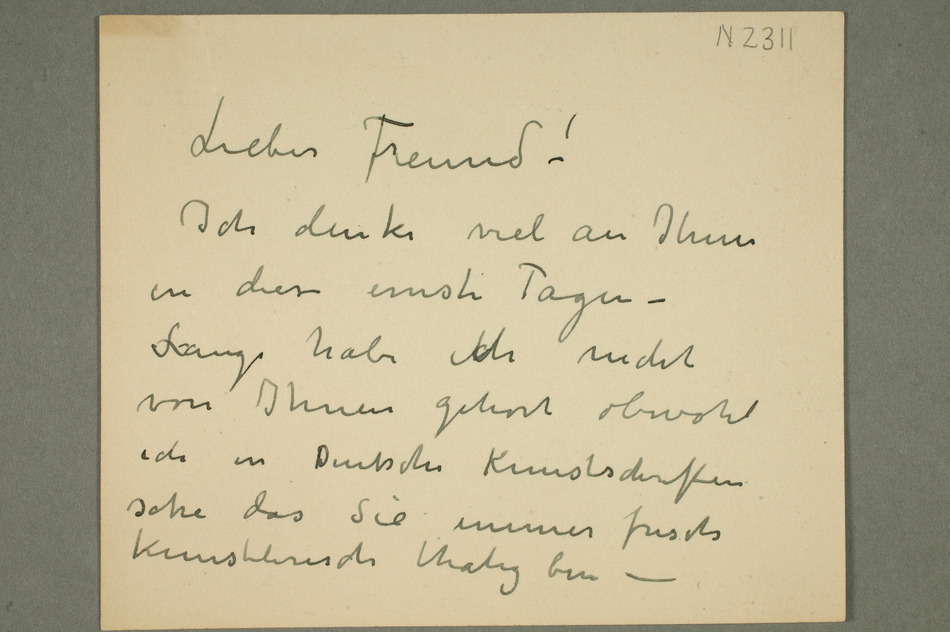 N2311
Lieber Freund!
Ich denke viel an Ihnen
in diese ernste Tagen –
Lange habe ich nicht
von Ihnen gehort obwohl
ich in Deutsche Kunstschriften
sehe das Sie immer frisch
Kunstlerisch thatig bin —